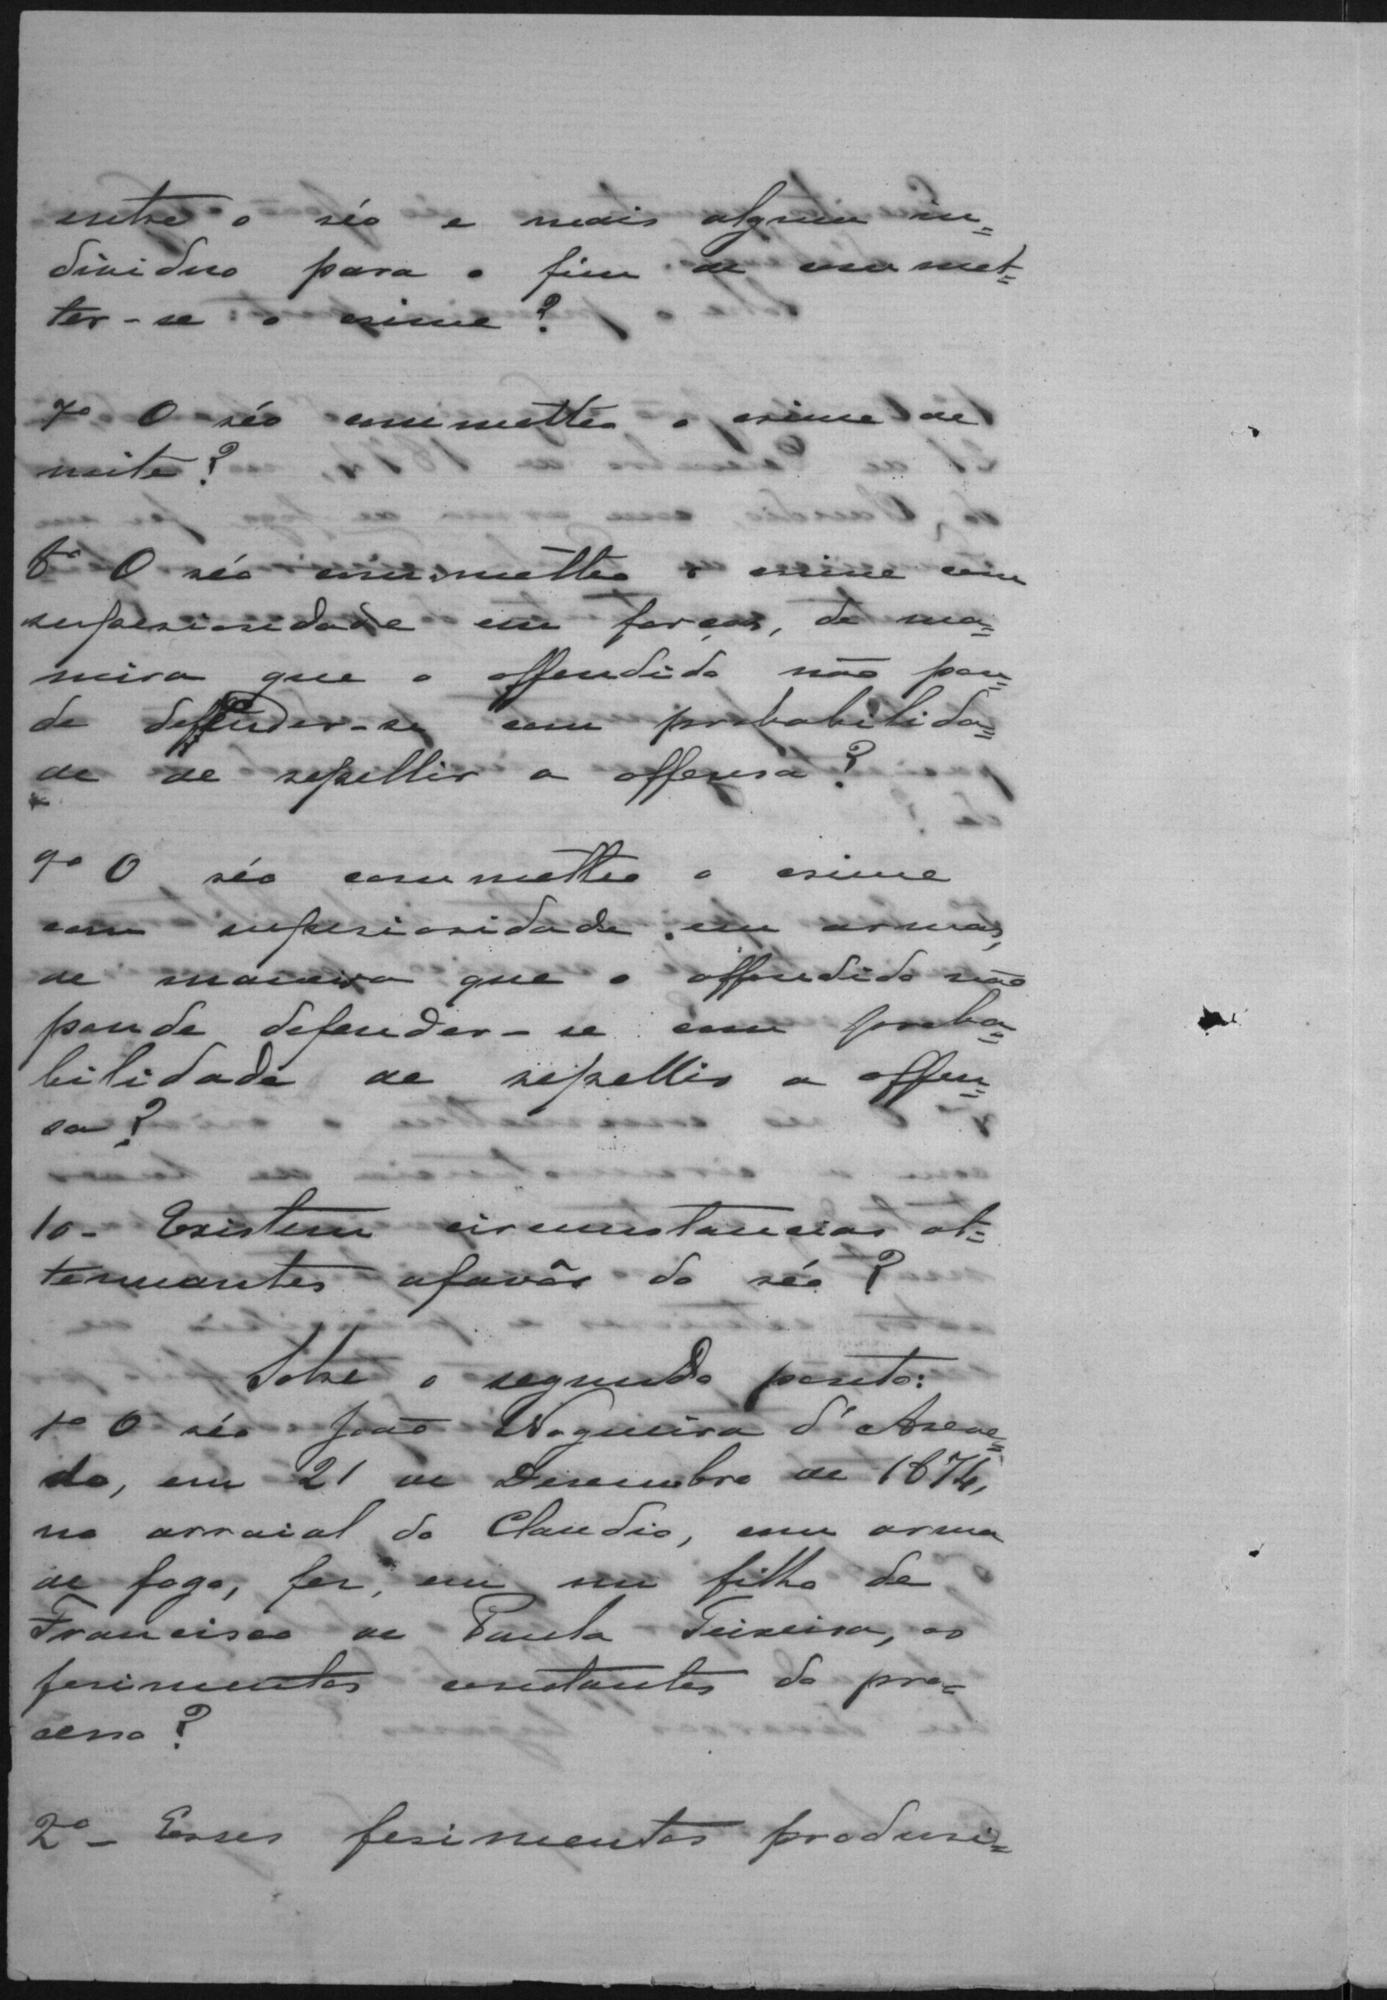 entre o réo e mais algum in=
dividuo para o fim de commet=
ter-se o crime?
7º O réo commetteo o crime de
noite?
8º O réo commetteo o crime com
superioridade em forças, de ma=
neira que o offendido não pou=
de deffender-se com probabilida=
de de repellir a offensa?
9º O réo commetteo o crime
com superioridade em armas,
de maneira que o offendido não
poude defender-se com proba=
bilidade de repellir a offen=
sa?
10- Existem circumstancias at=
tenuantes afavôr do réo?
Sobre o segundo ponto:
1º O réo João Nogueira d'Aseve=
do, em 21 de Desembro de 1874,
no arraial do Claudio, com arma
de fogo, fez, em um filho de
Francisco de Paula Teixeira, os
ferimentos constantes do pro=
cesso?
2º- Esses ferimentos produsi=